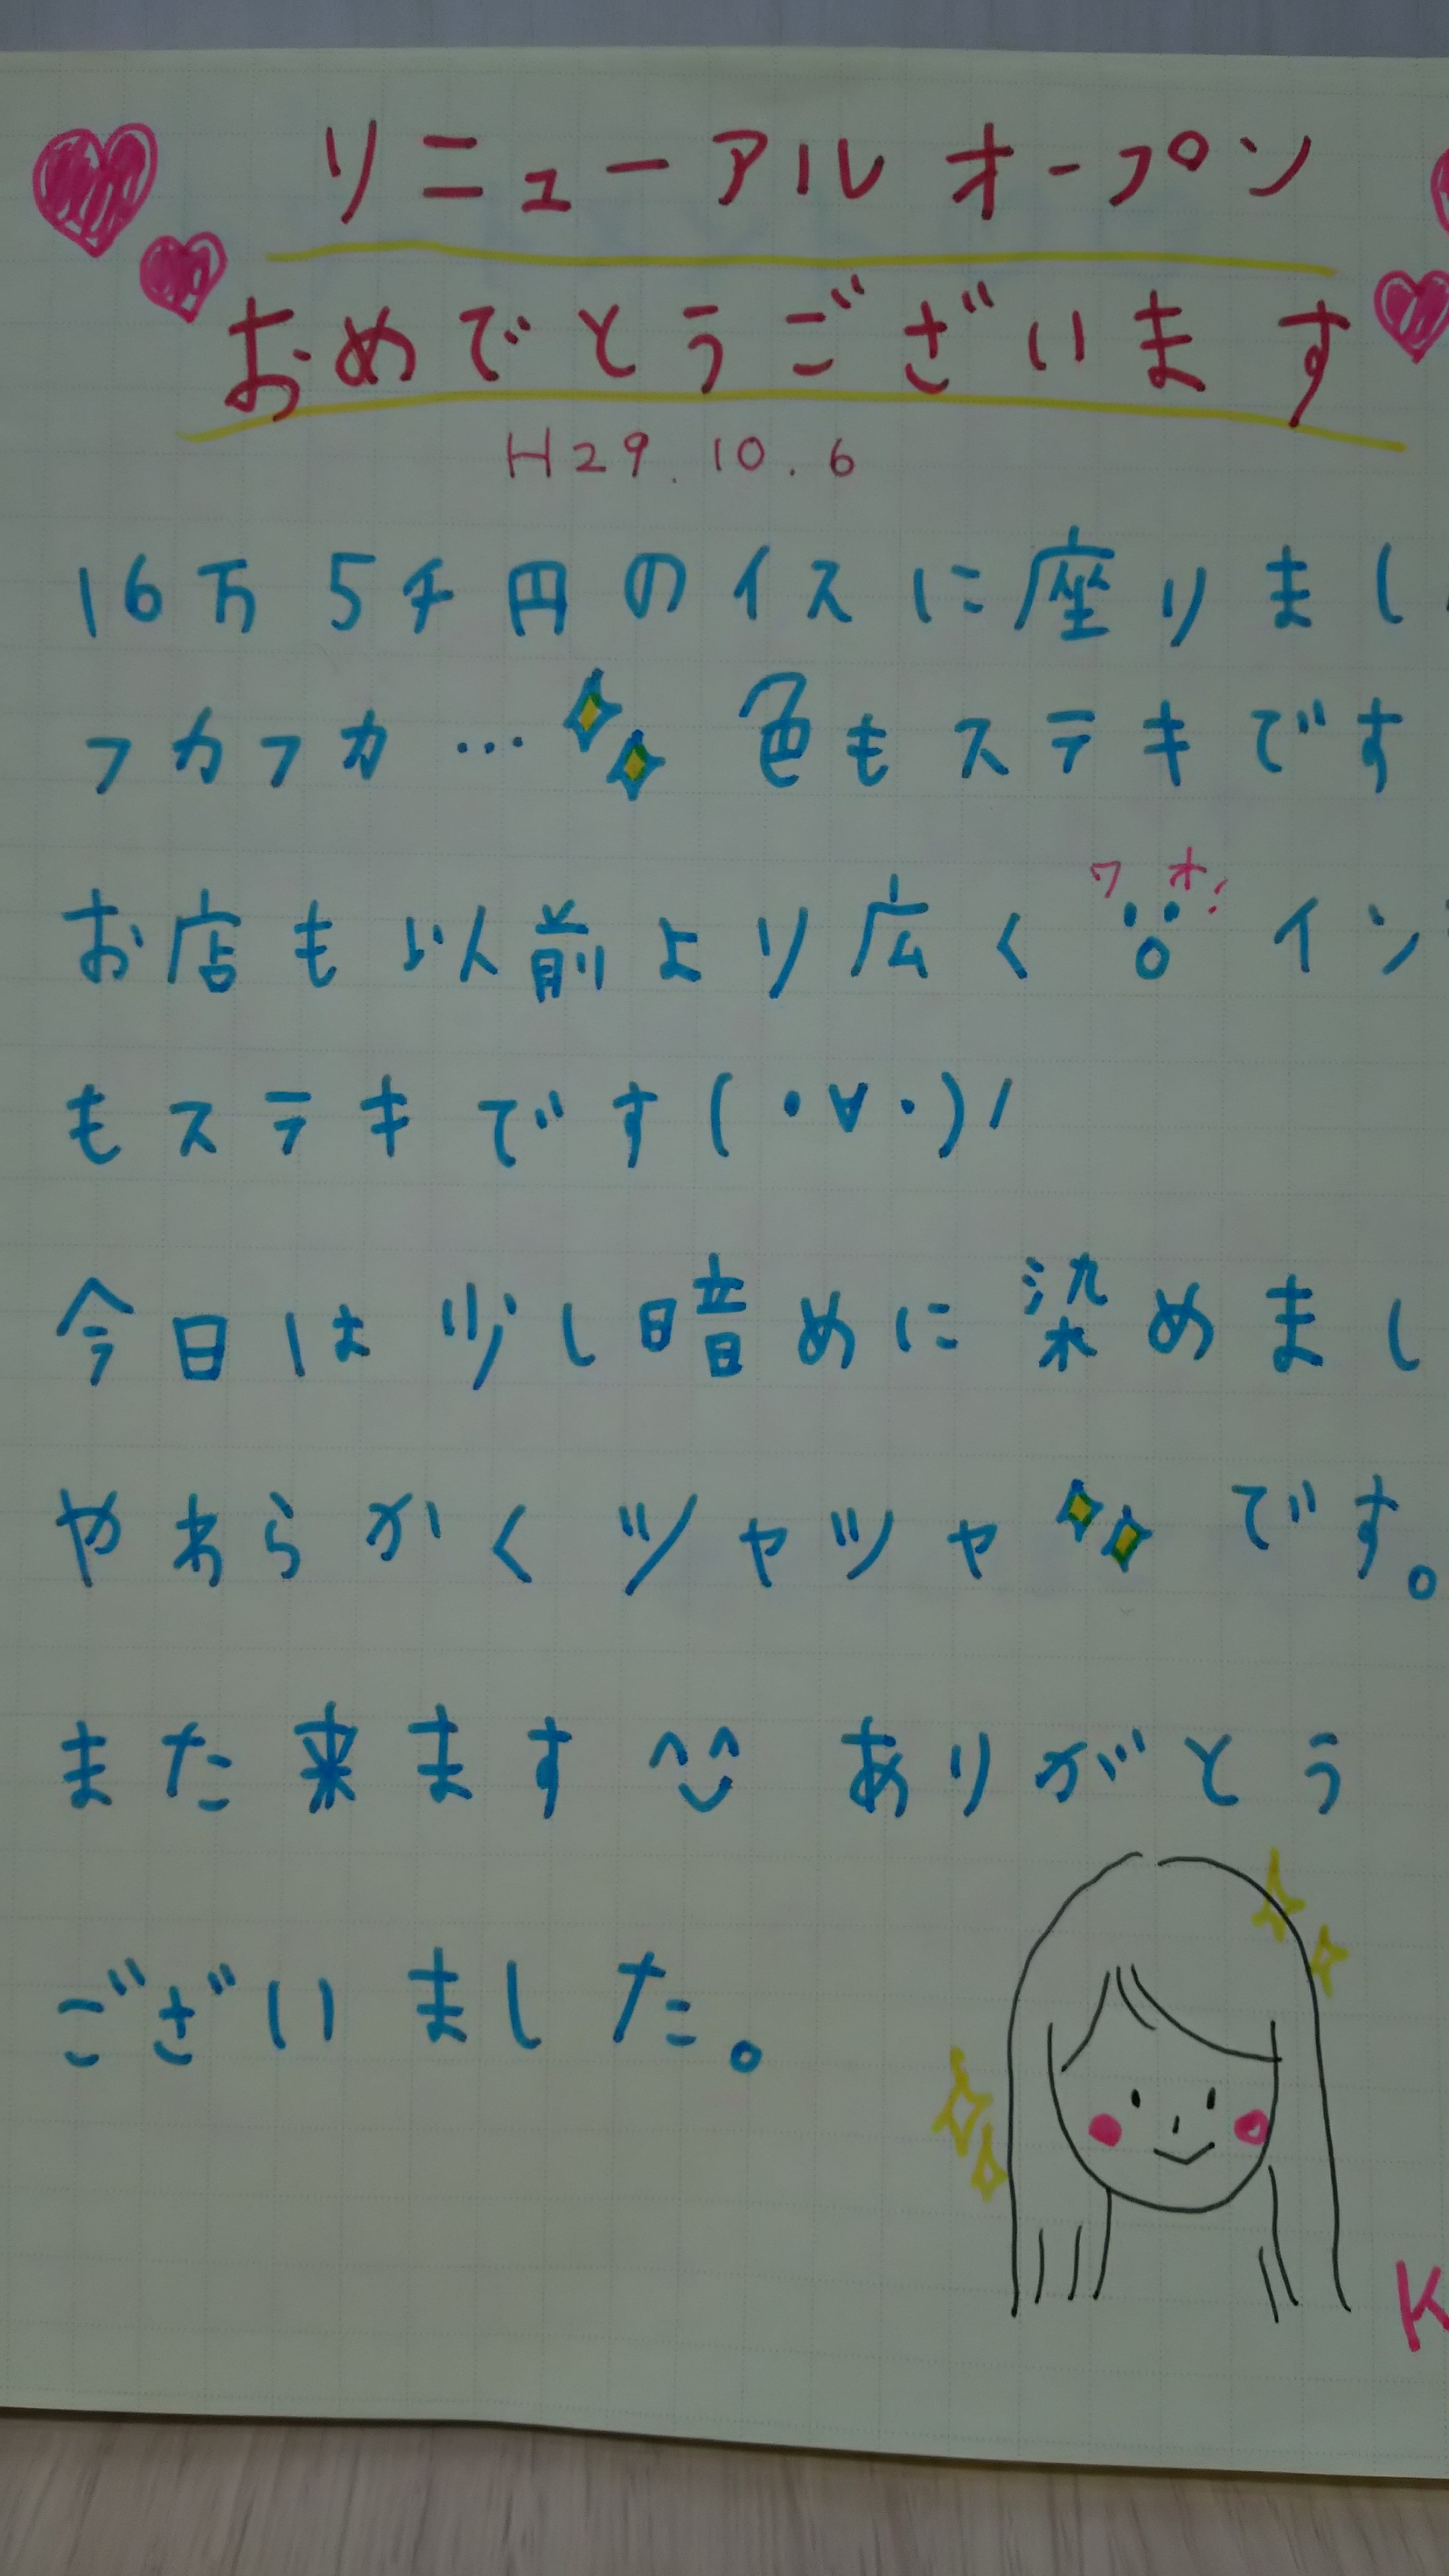 リニューアル オープン
おめでとうございます
H29.10.6
16万5千円のイスに座りまし
フカフカ… 色もステキです
ワオ!
お店も以前より広く イン
もステキです(・∀・)ノ
今日は少し暗めに染めまし
やわらかくツヤツヤ です。
また来ます ありがとう
ございました。
K